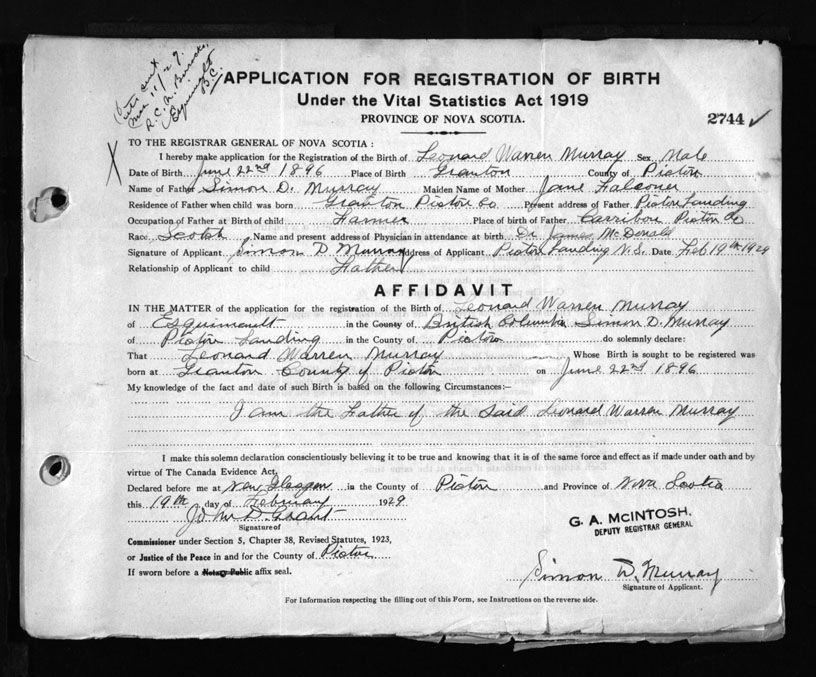 APPLICATION FOR REGISTRATION OF BIRTH
Under the Vital Statistics Act 1919
PROVINCE OF NOVA SCOTIA.
2744
Esquimalt
B.C.
TO THE REGISTRAR GENERAL OF NOVA SCOTIA :
I hereby make application for the Registration of the Birth of Leonard Warren Murray Sex Male
Date of Birth June 22nd 1896 Place of Birth Granton County of Pictou
Name of Father Simon D. Murray Maiden Name of Mother Jane Falconer
Residence of Father when child was born Granton Pictou Co Present address of Father Pictou Landing
Occupation of Father at Birth of child Farmer Place of birth of Father Carribou Pictou Co
Race Scotch Name and present address of Physician in attendance at birth Dr James McDonald
Signature of Applicant Simon D Murray Address of Applicant Pictou Landing N.S. Date Feb 19th 1929
Relationship of Applicant to child Father
AFFIDAVIT
IN THE MATTER of the application for the registration of the Birth of Leonard Warren Murray
of Esquimault in the County of British Columbia Simon D. Murray
of Pictou Landing in the County of Pictou do solemnly declare:
That Leonard Warren Murray Whose Birth is sought to be registered was
born at Granton County of Pictou on June 22nd 1896
My knowledge of the fact and date of such Birth is based on the following Circumstances:—
I am the Father of the said Leonard Warren Murray
I make this solemn declaration conscientiously believing it to be true and knowing that it is of the same force and effect as if made under oath and by
virtue of The Canada Evidence Act.
Declared before me at New Glasgow in the County of Pictou and Province of Nova Scotia
this 19th day of February 1929
John D. Grant
Signature of
G. A. McINTOSH.
DEPUTY REGISTRAR GENERAL
Commissioner under Section 5, Chapter 38, Revised Statutes, 1923,
or Justice of the Peace in and for the County of Pictou
If sworn before a Notary Public affix seal.
Simon D. Murray
Signature of Applicant.
For Information respecting the filling out of this Form, see Instructions on the reverse side.